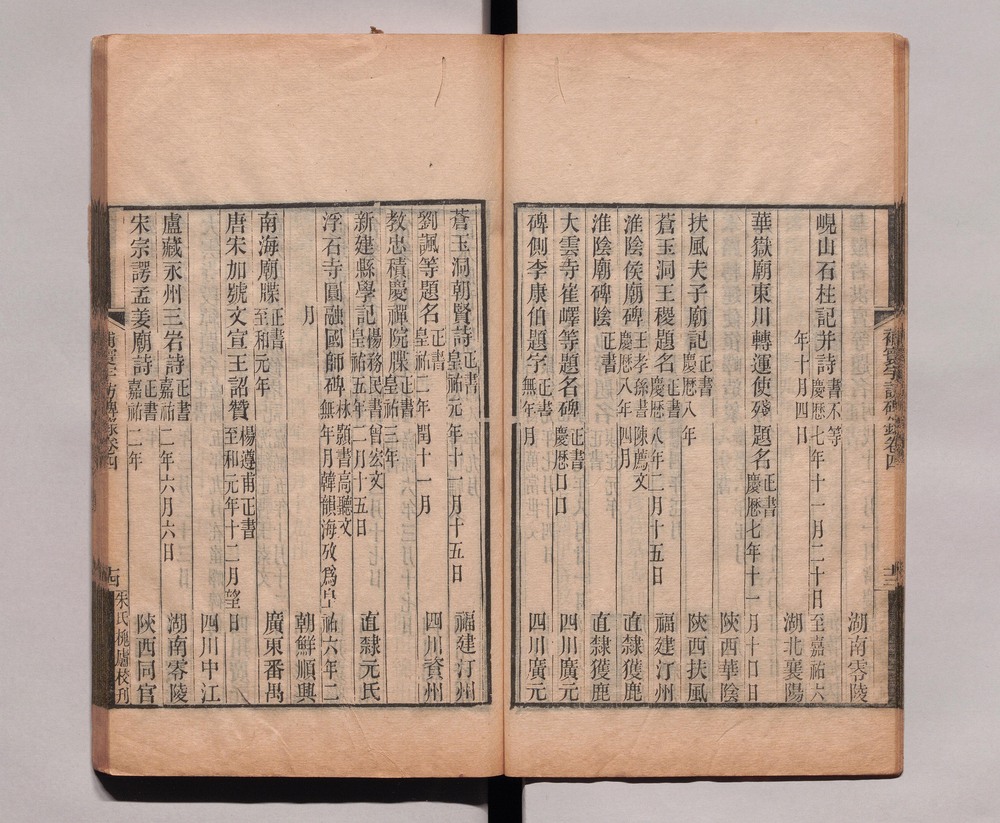 湖南零陵
峴山石柱記并詩 書不等 慶歷七年十一月二十日至嘉祐六
年十月四日 湖北襄陽
華嶽廟東川轉運使殘題名 正書 慶歷七年十一
月十口日 陝西華陰
扶風夫子廟記 正書 慶歷八年 陝西扶風
蒼玉洞王稷題名 正書 慶歷八年二月十五日 福建汀州
淮陰侯廟碑 王孝孫書 陳薦文 慶歷八年四月 直隸獲鹿
淮陰廟碑陰 正書 直隸獲鹿
大雲寺崔嶧等題名碑 正書 慶歷口口 四川廣元
碑側李康伯題字 正書 無年月 四川廣元
補寰宇訪碑錄卷四 十三
蒼玉洞朝賢詩 正書 皇祐元年十一月十五日 福建汀州
劉諷等題名 正書 皇祐二年閏十一月 四川資州
教忠積慶禪院牒 正書 皇祐三年
新建縣學記 楊務民書 曾宏文 皇祐五年二月十五日 直隸元氏
浮石寺圓融國師碑 林顥書 高聽文 無年月韓韻海攷爲皇祐六年二
月 朝鮮順興
南海廟牒 正書 至和元年 廣東番禺
唐宋加號文宣王詔贊 楊遵甫正書 至和元年十二月望日 四川中江
盧藏永州三岩詩 正書 嘉祐二年六月六日 湖南零陵
宋宗諤孟姜廟詩 正書 嘉祐二年 陝西同官
補寰宇訪碑錄卷四 十四 朱氏槐廬校刊